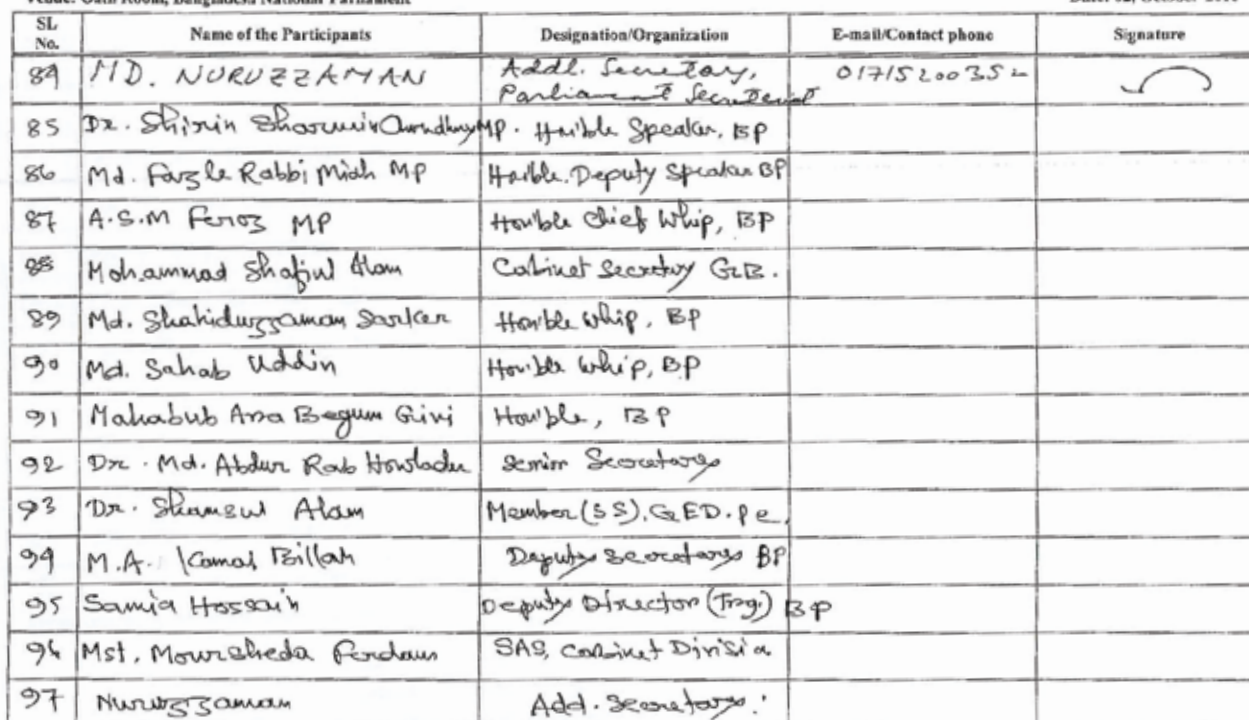 Venue: Oath Room, Bangladesh National Parliament
SL No. Name of the Participants Designation/Organization E-mail/Contact phone Signature
84 MD. NURUZZAMAN Addl. Secretary, Parliament Secretariat 01715200352
85 Dr. Shirin Sharmin Chowdhury MP. Hon'ble Speaker, BP
86 Md. Fazle Rabbi Miah MP Hon'ble Deputy Speaker BP
87 A.S.M Feroz MP Hon'ble Chief Whip, BP
88 Mohammad Shafiul Alam Cabinet Secretary GOB.
89 Md. Shahiduzzaman Sarker Hon'ble Whip, BP
90 Md. Sahab Uddin Hon'ble Whip, BP
91 Mahabub Ara Begum Gini Hon'ble, BP
92 Dr. Md. Abdur Rab Howlader Senior Secretary
93 Dr. Shamsul Alam Member (SS), GED. pc.
94 M.A. Kamal Billah Deputy Secretary BP
95 Samia Hossain Deputy Director (Trg.) BP
96 Mst. Moursheda Ferdaus SAS, Cabinet Division
97 Nuruzzaman Add. Secretary.